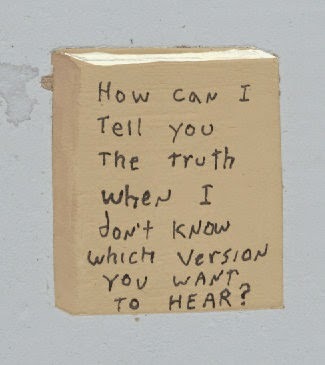 How can I
Tell you
The Truth
when I
don't know
which version
you want
To HEAR?